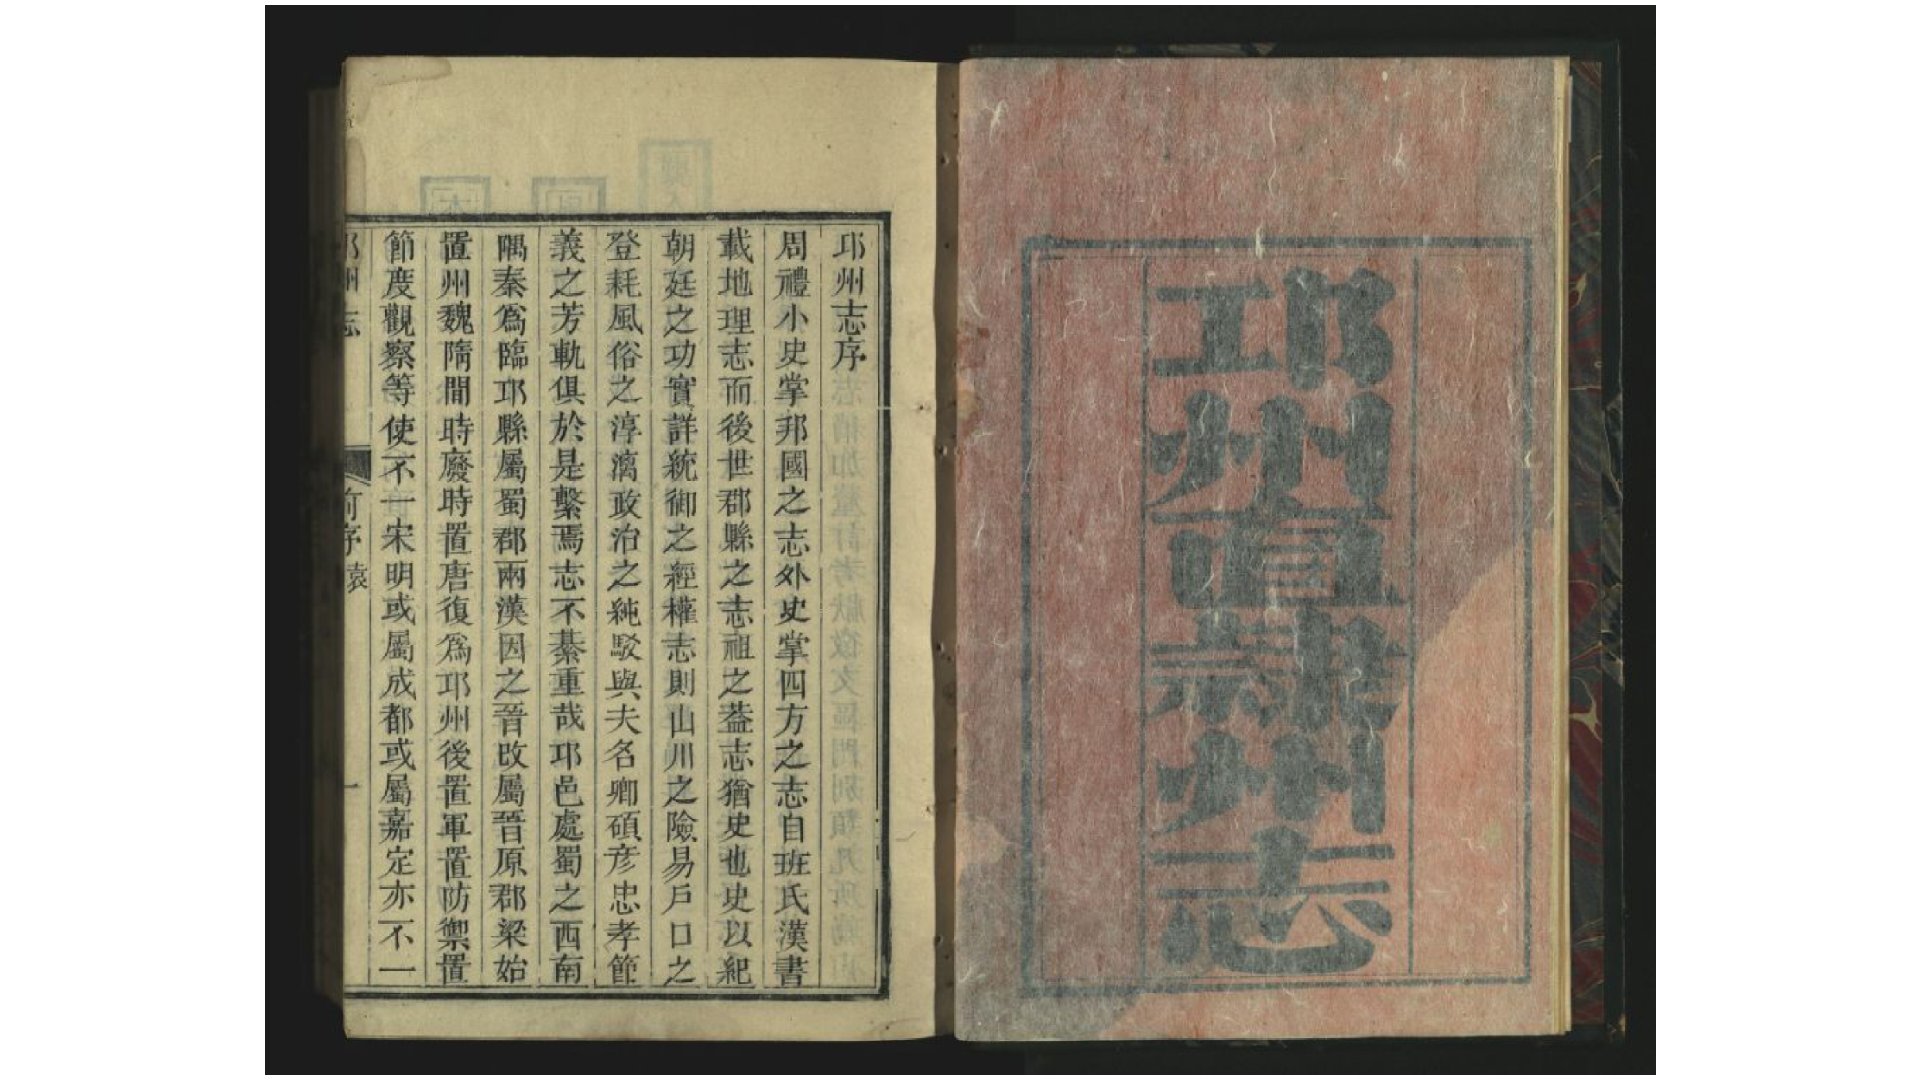 邛州直隸州志
邛州志序
周禮小史掌邦國之志外史掌四方之志自班氏漢書
載地理志而後世郡縣之志祖之葢志猶史也史以紀
朝廷之功實詳統御之經權志則山川之險易戶口之
登耗風俗之淳漓政治之純駁與夫名卿碩彦忠孝節
義之芳軌俱於是繫焉志不綦重哉邛邑處蜀之西南
隅秦爲臨邛縣屬蜀郡兩漢因之晉改屬晉原郡梁始
置州魏隋間時廢時置唐復爲邛州後置軍置防禦置
節度觀察等使不一宋明或屬成都或屬嘉定亦不一
邛州志
前序 袁
一